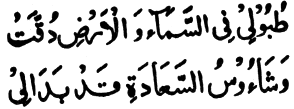 طُبُوْلِىْ فِى السَّمَآءِ وَ الْاَرْضِ دُقَّتْ
وَشَاءُوْسُ السَّعَادَةِ قَدْ بَدَالِىْ